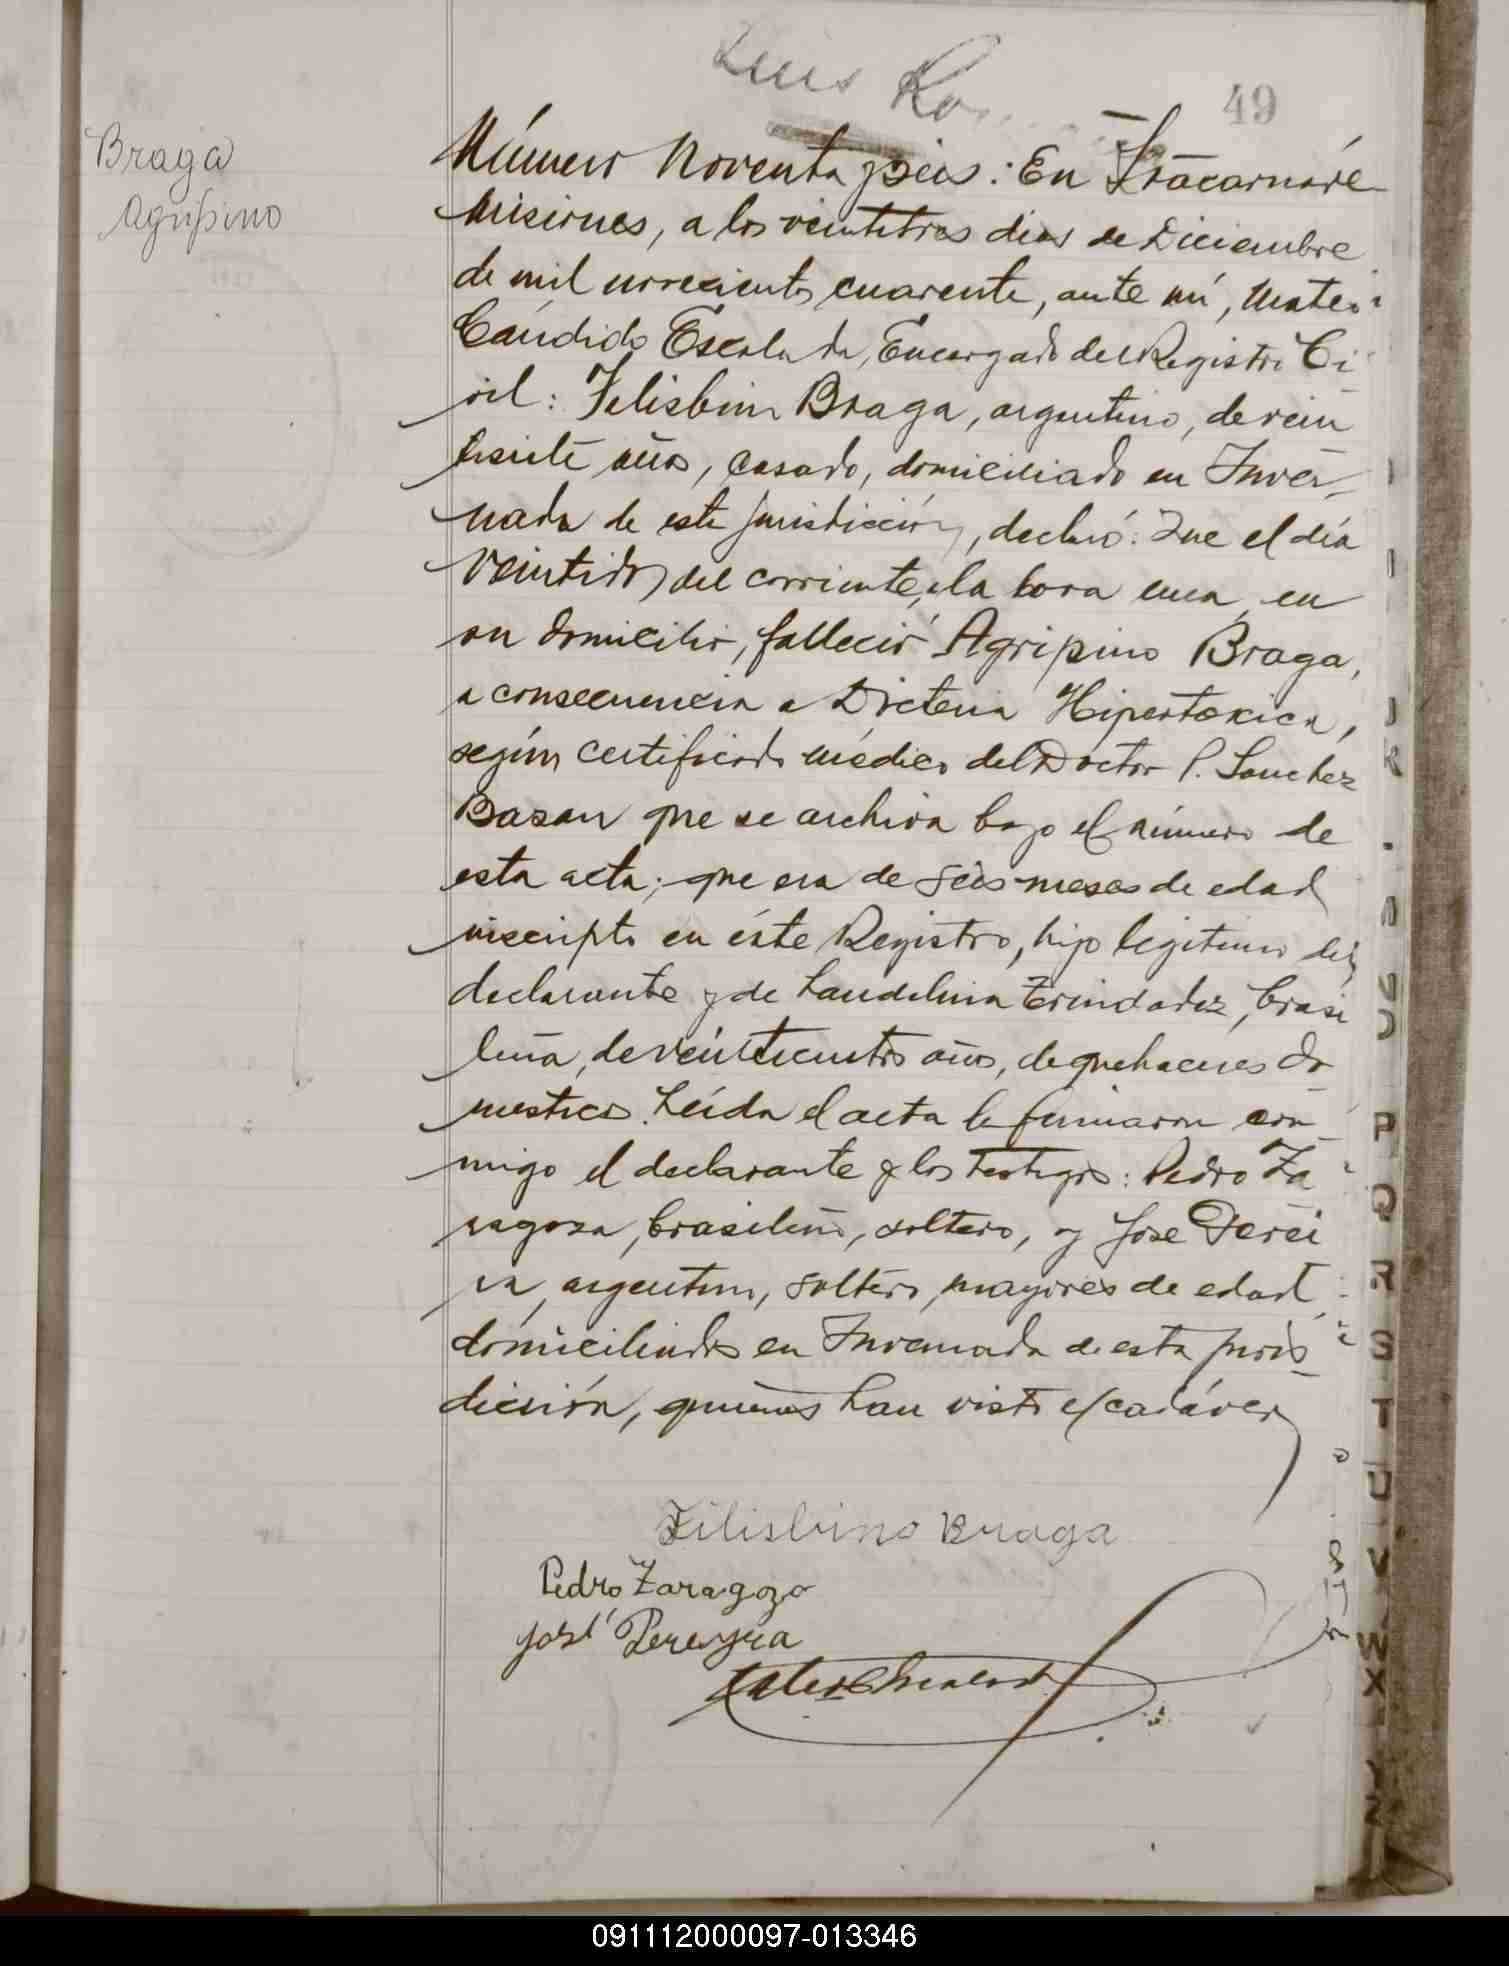 Luis Ro
49
Braga
Agripino
Número Noventa y seis: En Itacaruaré
Misiones, a los veintitres dias de Diciembre
de mil novecientos cuarenta, ante mí, Mateo
Cándido Escalada, Encargado del Registro Ci
vil: Felisbino Braga, argentino, de vein
tisiete años, casado, domiciliado en Inver
nada de esta jurisdicción, declaró: Que el día
veintidos del corriente, a la hora una, en
su domicilio, falleció Agripino Braga,
a consecuencia a Dicteria Hipertoxica,
según certificado médico del Doctor P. Sanchez
Bazan que se archiva bajo el número de
esta acta; que era de seis meses de edad
inscripto en éste Registro, hijo legitimo del
declarante y de Laudelina Trindadez, brasi
leña, de veinticuatro años, de quehaceres do
mesticos. Leída el acta la firmaron con
migo el declarante y los testigos: Pedro Za
ragoza, brasileño, soltero, y José Perei
ra, argentino, soltero, mayores de edad
domiciliados en Invernada de esta juris
dicción, quienes han visto el cadáver
Filisbino Braga
Pedro Zaragozo
José Pereyra
P
Q
R
S
T
U
V
W
X
Y
Z
091112000097-013346